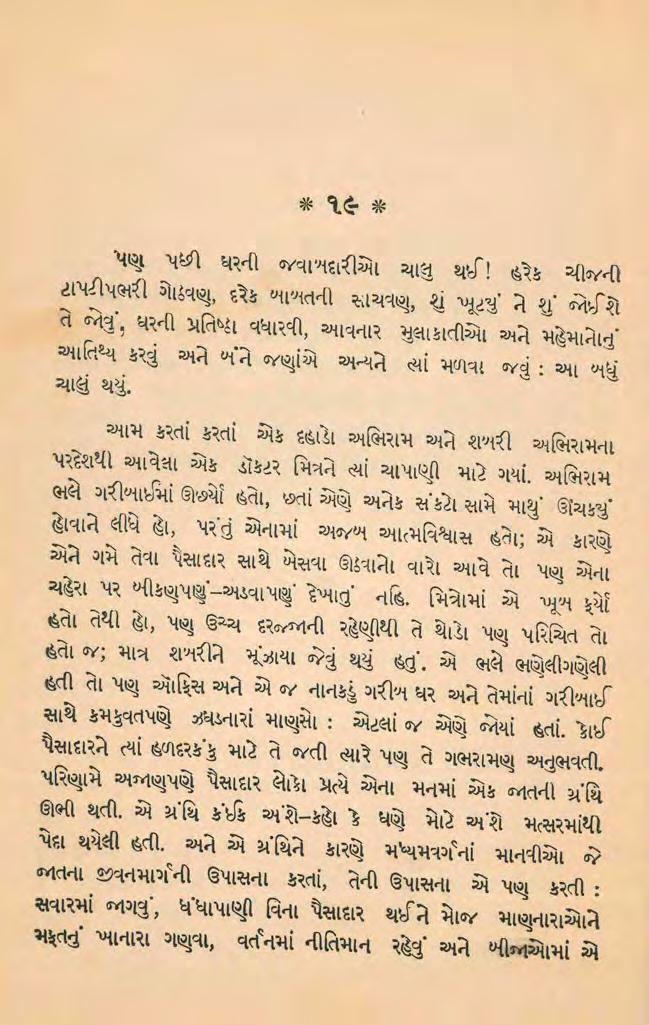 * ૧૯ *
પણ પછી ઘરની જવાબદારીઓ ચાલુ થઈ! હરેક ચીજની
ટાપટીપભરી ગોઠવણ, દરેક બાબતની સાચવણ, શું ખૂટયું ને શું જોઈશે
તે જોવું, ઘરની પ્રતિષ્ઠા વધારવી, આવનાર મુલાકાતીઓ અને મહેમાનોનું
આતિથ્ય કરવું અને બંને જણાંએ અન્યને ત્યાં મળવા જવું : આ બધું
ચાલું થયું.
આમ કરતાં કરતાં એક દહાડો અભિરામ અને શબરી અભિરામના
પરદેશથી આવેલા એક ડૉકટર મિત્રને ત્યાં ચાપાણી માટે ગયાં. અભિરામ
ભલે ગરીબાઈમાં ઊછર્યો હતો, છતાં એણે અનેક સંકટો સામે માથું ઊંચક્યું
હોવાને લીધે હો, પરંતું એનામાં અજબ આત્મવિશ્વાસ હતો; એ કારણે
એને ગમે તેવા પૈસાદાર સાથે બેસવા ઊઠવાનો વારો આવે તો પણ એના
ચહેરા પર બીકણપણું–અડવાપણું દેખાતું નહિ. મિત્રોમાં એ ખૂબ ફર્યો
હતો તેથી હો, પણ ઉચ્ચ દરજ્જાની રહેણીથી તે થોડો પણ પરિચિત તો
હતો જ; માત્ર શબરીને મૂંઝાયા જેવું થયું હતું. એ ભલે ભણેલીગણેલી
હતી તો પણ ઑફિસ અને એ જ નાનકડું ગરીબ ઘર અને તેમાંનાં ગરીબાઈ
સાથે કમકુવતપણે ઝઘડનારાં માણસો : એટલાં જ એણે જોયાં હતાં. કોઈ
પૈસાદારને ત્યાં હળદરકંકુ માટે તે જતી ત્યારે પણ તે ગભરામણ અનુભવતી.
પરિણામે અજાણપણે પૈસાદાર લોકો પ્રત્યે એના મનમાં એક જાતની ગ્રંથિ
ઊભી થતી. એ ગ્રંથિ કંઈક અંશે–કહો કે ઘણે મોટે અંશે મત્સરમાંથી
પેદા થયેલી હતી. અને એ ગ્રંથિને કારણે મધ્યમવર્ગનાં માનવીઓ જે
જાતના જીવનમાર્ગની ઉપાસના કરતાં, તેની ઉપાસના એ પણ કરતી :
સવારમાં જાગવું, ધંધાપાણી વિના પૈસાદાર થઈને મોજ માણનારાઓને
મફતનું ખાનારા ગણવા, વર્તનમાં નીતિમાન રહેવું અને બીજાઓમાં એ